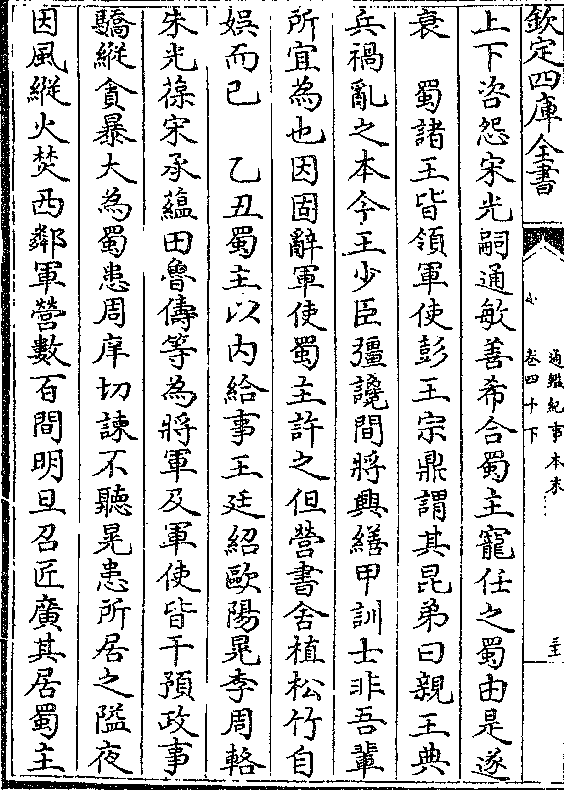 欽定四庫全書
通鑑紀事本末
卷四十下
上下咨怨宋光嗣通敏善希合蜀主寵任之蜀由是遂
衰　蜀諸王皆領軍使彭王宗鼎謂其昆弟曰親王典
兵禍亂之本今王少臣彊讒間將興繕甲訓士非吾輩
所宜為也因固辭軍使蜀主許之但營書舍植松竹自
娯而已　乙丑蜀主以内給事王廷紹歐陽晃李周輅
朱光葆宋承蘊田魯儔等為將軍及軍使皆干預政事
驕縱貪暴大為蜀患周庠切諫不聽晃患所居之隘夜
因風縱火焚西鄰軍營數百間明旦召匠廣其居蜀主